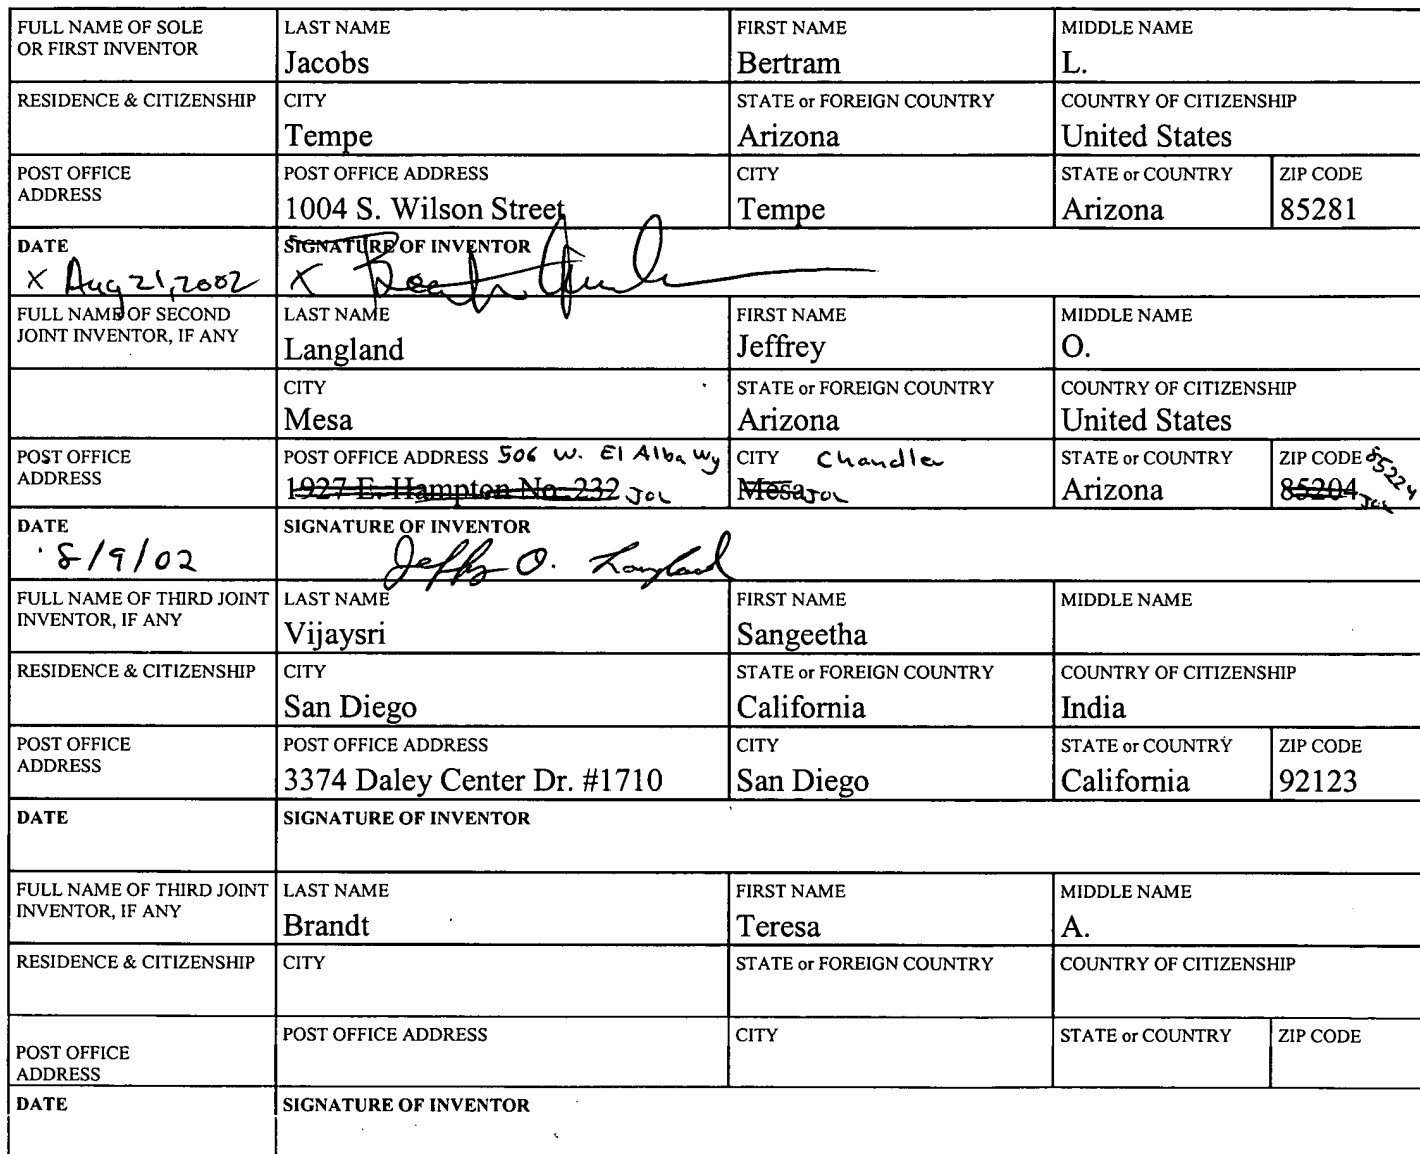 FULL NAME OF SOLE OR FIRST INVENTOR
LAST NAME Jacobs
FIRST NAME Bertram
MIDDLE NAME L.
RESIDENCE & CITIZENSHIP
CITY Tempe
STATE or FOREIGN COUNTRY Arizona
COUNTRY OF CITIZENSHIP United States
POST OFFICE ADDRESS
POST OFFICE ADDRESS 1004 S. Wilson Street
CITY Tempe
STATE or COUNTRY Arizona
ZIP CODE 85281
DATE X Aug 21, 2002
SIGNATURE OF INVENTOR X
FULL NAME OF SECOND JOINT INVENTOR, IF ANY
LAST NAME Langland
FIRST NAME Jeffrey
MIDDLE NAME O.
CITY Mesa
STATE or FOREIGN COUNTRY Arizona
COUNTRY OF CITIZENSHIP United States
POST OFFICE ADDRESS
POST OFFICE ADDRESS 506 W. El Alba Wy
1927 E. Hampton No. 232 JOL
CITY Chandler
Mesa JOL
STATE or COUNTRY Arizona
ZIP CODE 85224
85204 JOL
DATE 8/9/02
SIGNATURE OF INVENTOR Jeffry O. Langland
FULL NAME OF THIRD JOINT INVENTOR, IF ANY
LAST NAME Vijaysri
FIRST NAME Sangeetha
MIDDLE NAME
RESIDENCE & CITIZENSHIP
CITY San Diego
STATE or FOREIGN COUNTRY California
COUNTRY OF CITIZENSHIP India
POST OFFICE ADDRESS
POST OFFICE ADDRESS 3374 Daley Center Dr. #1710
CITY San Diego
STATE or COUNTRY California
ZIP CODE 92123
DATE
SIGNATURE OF INVENTOR
FULL NAME OF THIRD JOINT INVENTOR, IF ANY
LAST NAME Brandt
FIRST NAME Teresa
MIDDLE NAME A.
RESIDENCE & CITIZENSHIP
CITY
STATE or FOREIGN COUNTRY
COUNTRY OF CITIZENSHIP
POST OFFICE ADDRESS
POST OFFICE ADDRESS
CITY
STATE or COUNTRY
ZIP CODE
DATE
SIGNATURE OF INVENTOR